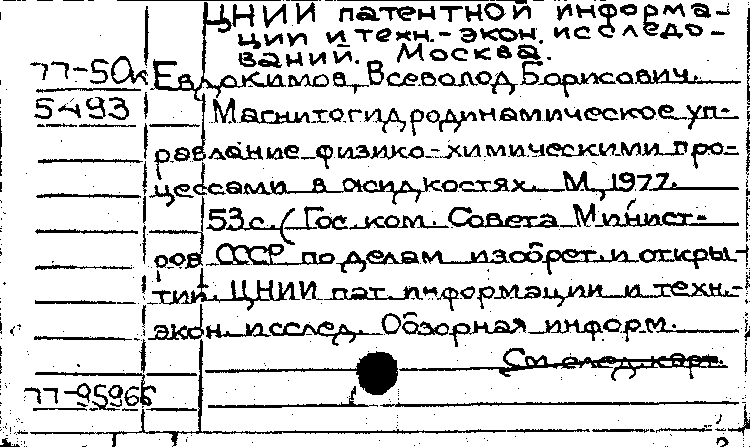 ЦНИИ патентной информа-
ции и техн.-экон. исследо-
ваний. Москва.
77-50к Евдокимов, Всеволод Борисович.
5493 Магнитогидродинамическое уп-
равление физико-химическими про-
цессами в жидкостях. М., 1977.
53 с. (Гос. ком. Совета Минист-
ров СССР по делам изобрет. и откры-
тий. ЦНИИ пат. информации и техн.-
экон. исслед. Обзорная информ.
См. след. карт.
77-95966